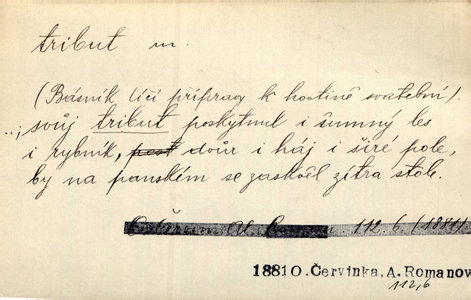 tribut m.
(Básník líčí přípravy k hostině svatební).
..., svůj tribut poskytnul i šumný les
i rybník, pest dvůr i háj i širé pole,
by na panském se zaskvěl zítra stole.
112. 6. (1881)
1881 O. Červinka, A. Romanow
112,6